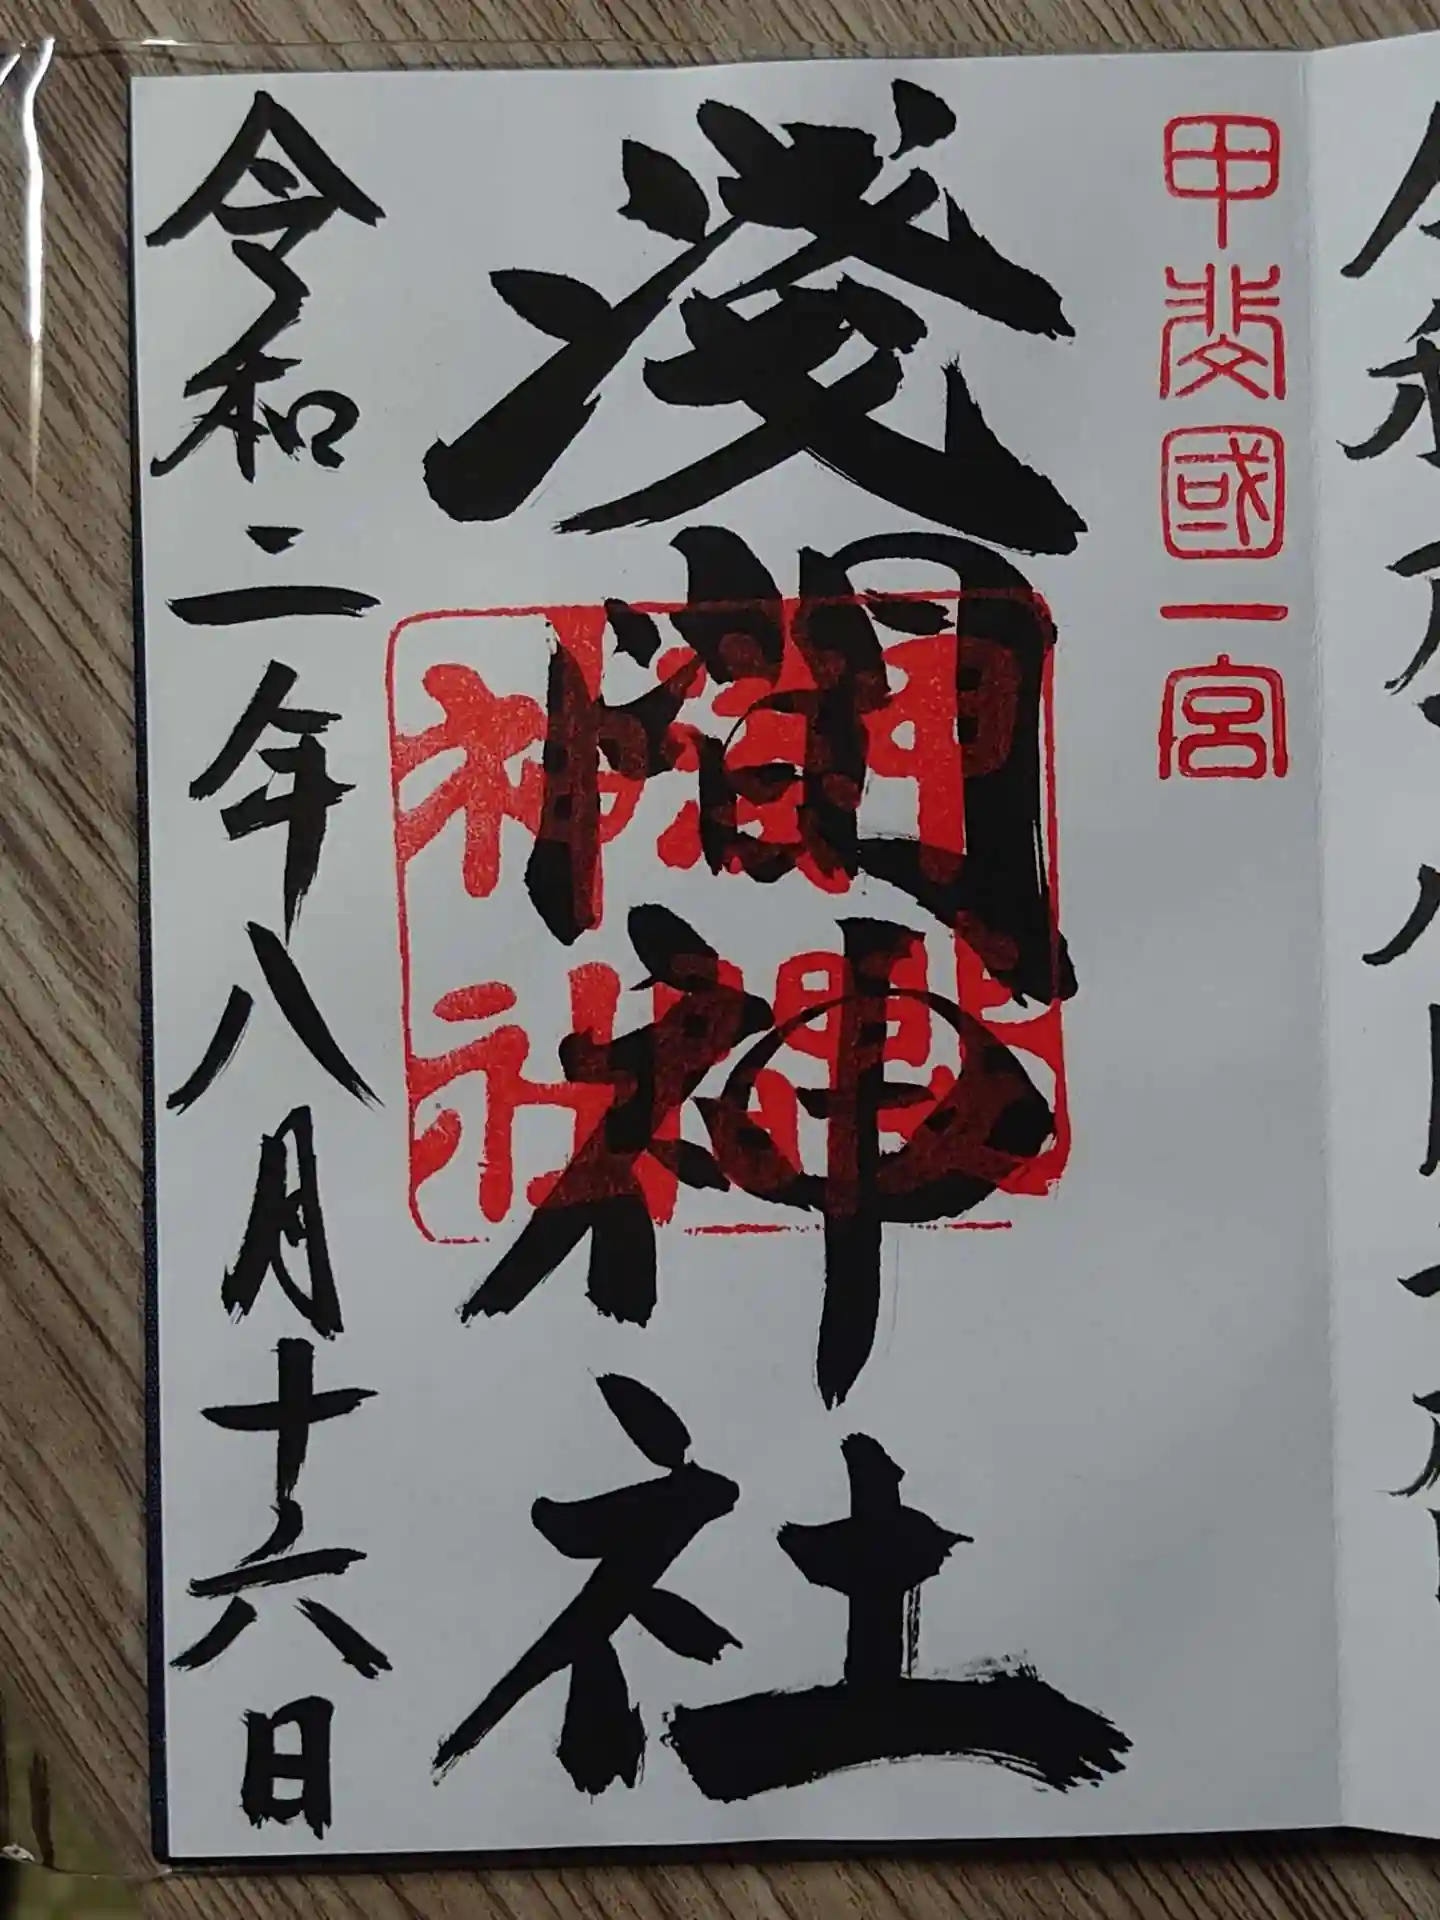 甲斐國一宮
淺間神社
淺間神社
令和二年八月十六日